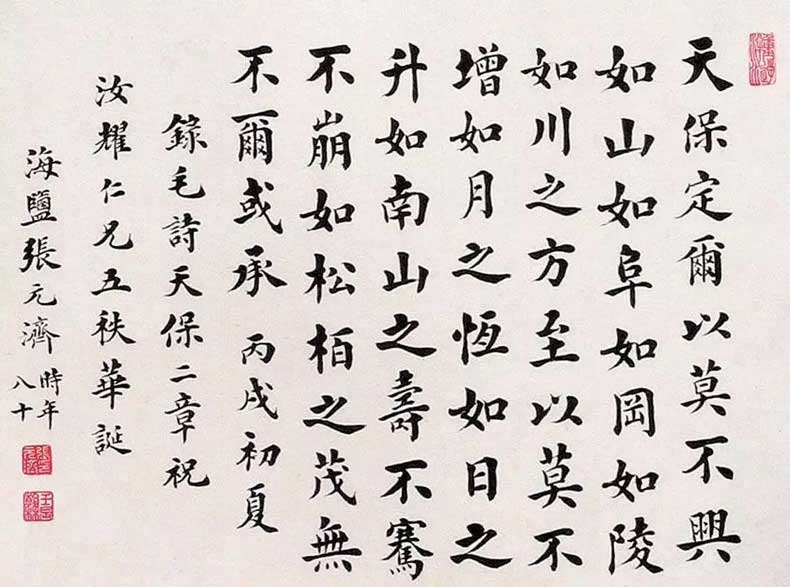 天保定爾以莫不興
如山如阜如岡如陵
如川之方至以莫不
增如月之恆如日之
升如南山之壽不騫
不崩如松柏之茂無
不爾或承 丙戌初夏
錄毛詩天保二章祝
汝耀仁兄五秩華誕
海鹽張元濟 時年
八十